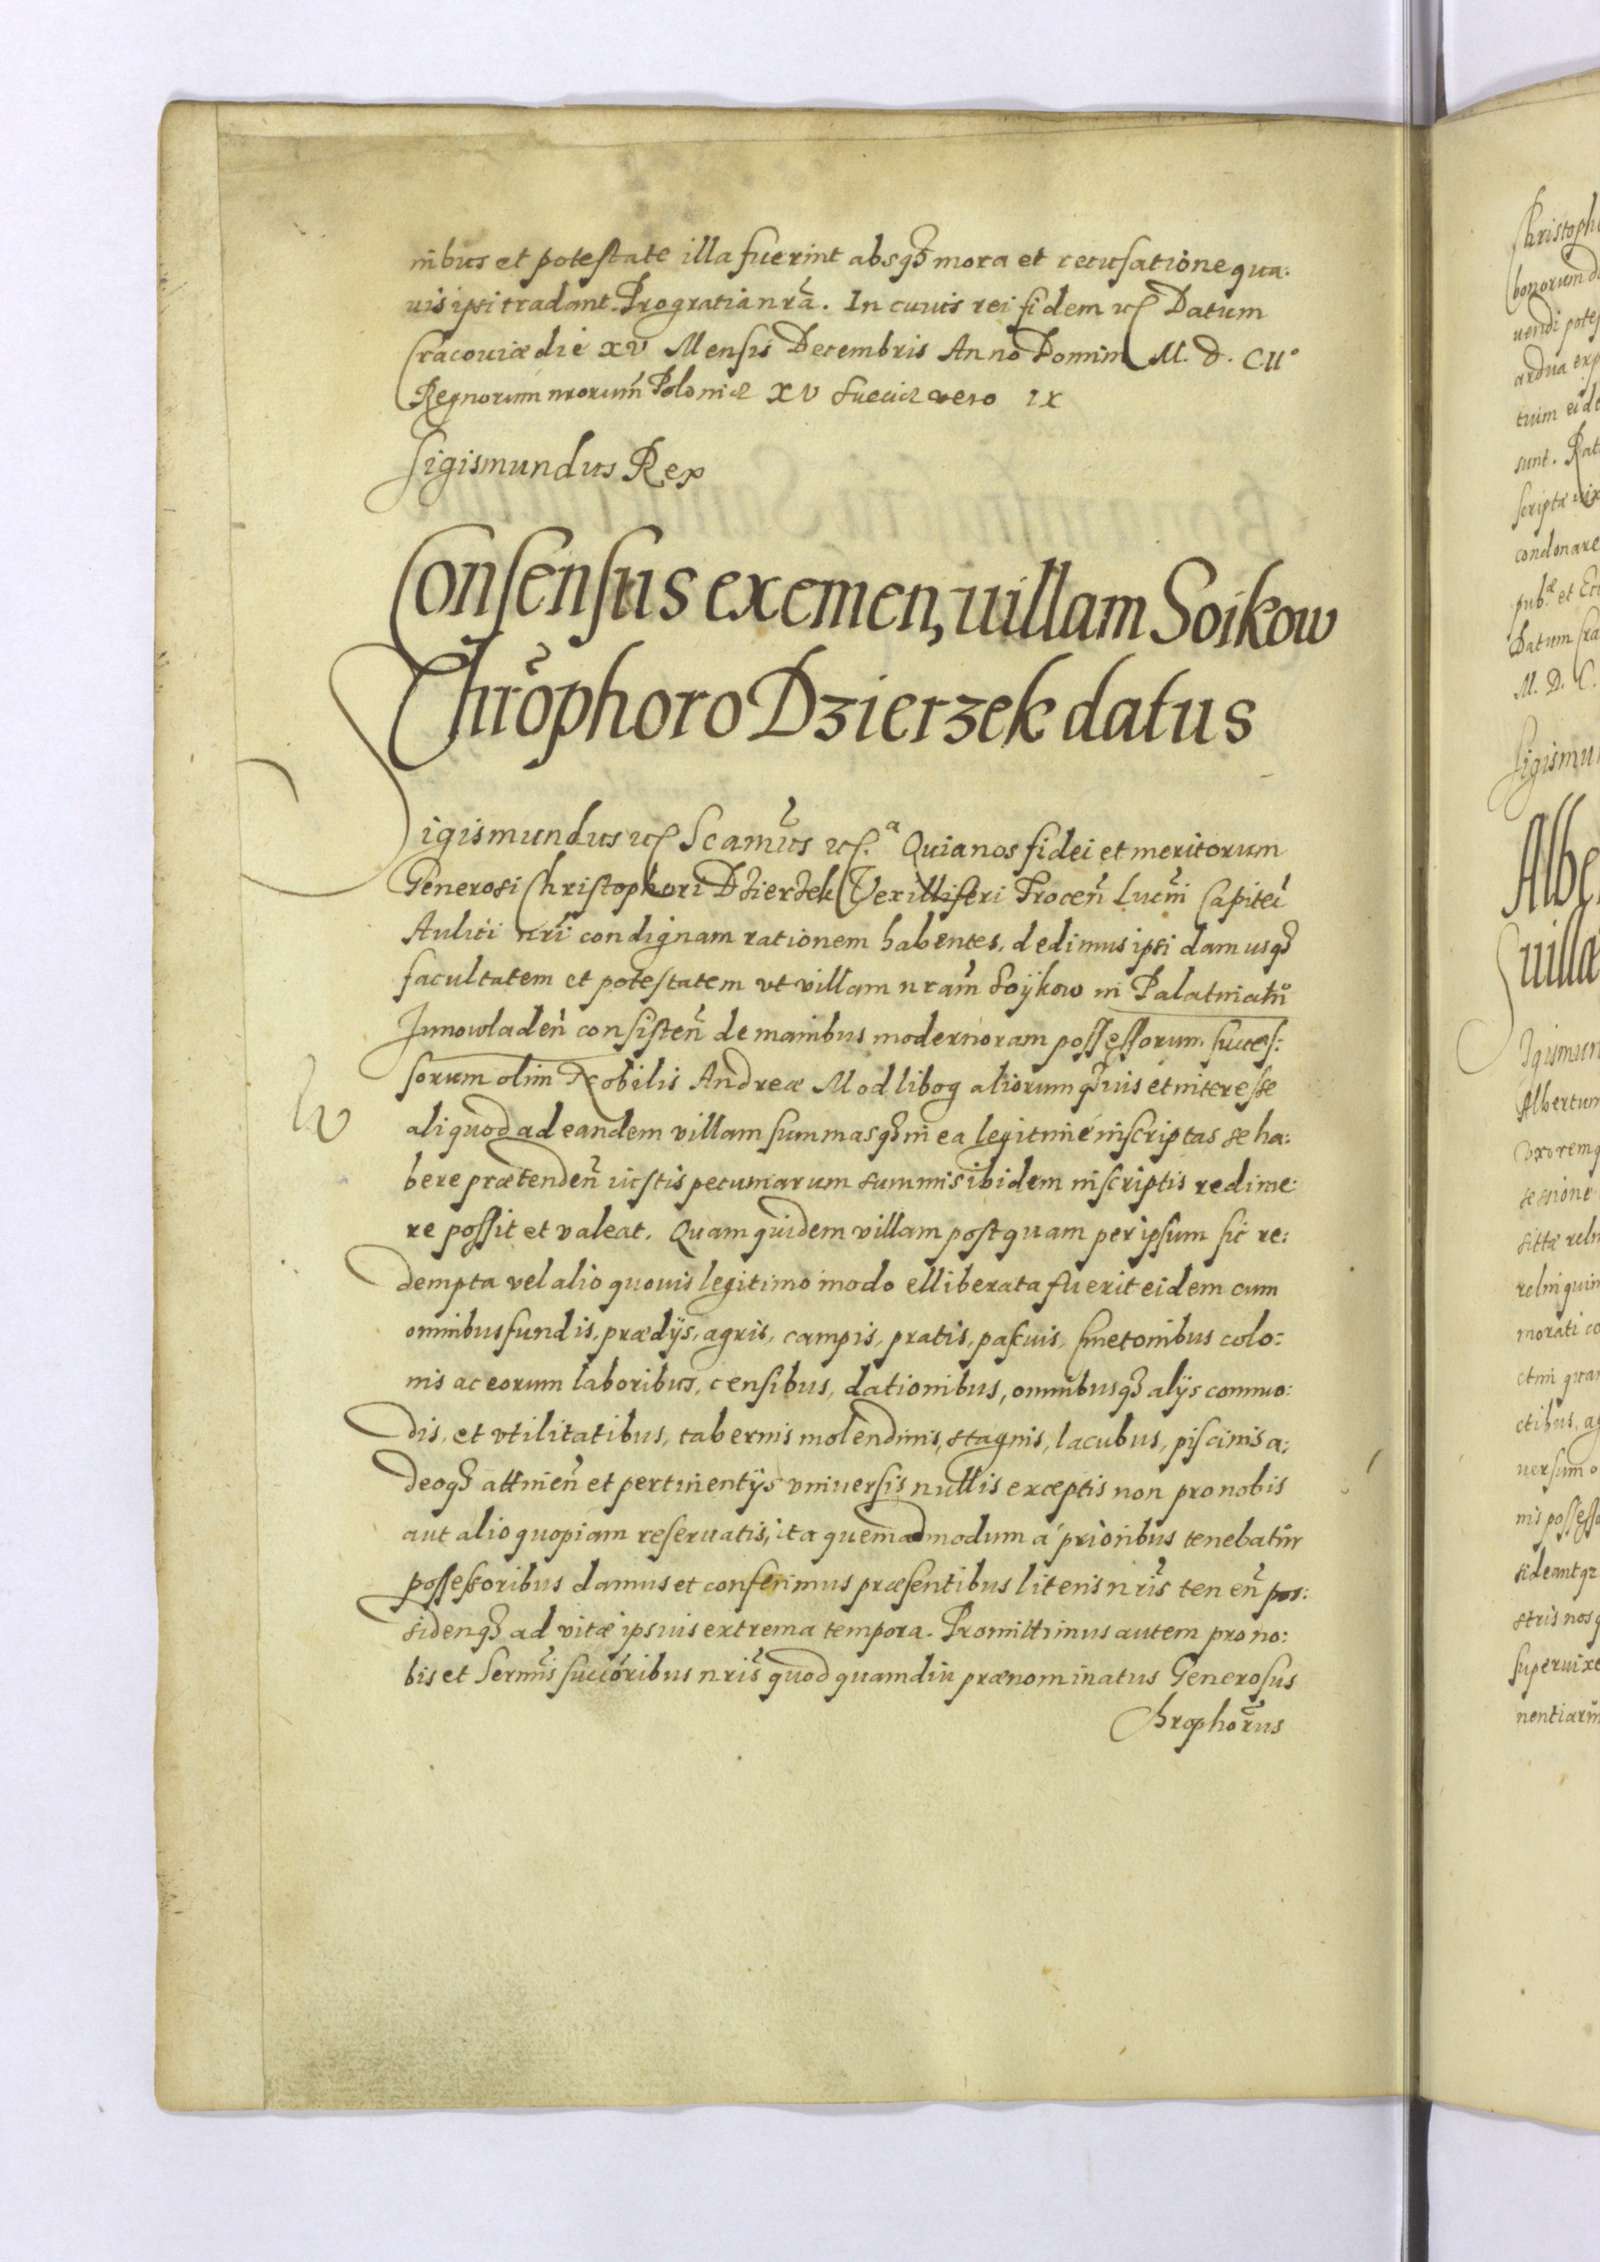 nibus et potestate illa fuerint absq3 mora et recusatione qua:
uis ipsi tradant. Pro gratia nrã. In cuius rei fidem etc Datum
Cracoviæ die XV Mensis Decembris Anno Domini M. D. CII°
Regnorum nrorum̃ Poloniæ XV Sueciæ vero IX
Sigismundus Rex
Consensus exemen, uillam Soikow
Chrõphoro Dzierzek datus
Sigismundus etc Scamũs etc.ª Quia nos fidei et meritorum
Generosi Christophori Dzierzek Vexilliferi Proceñ Lucm̃i Capitei
Aulici nrĩ condignam rationem habentes, dedimus ipsi damusq3
facultatem et potestatem vt villam nram̃ Soÿkow in Palatinatu
Junowladeñ consisteñ de manibus modernoram possessorum succes:
sorum olim Nobilis Andreæ Modlibog aliorumq3 ius et interesse
aliquod ad eandem villam summasq3 in ea legitimé inscriptas se ha:
bere prætendeñ iustis pecuniarum summis ibidem inscriptis redime:
re possit et valeat. Quam quidem villam postquam per ipsum sic re:
dempta vel alio quouis legitimo modo elliberata fuerit eidem cum
omnibus fundis, prædÿs, agris, campis, pratis, pascuis, Cmetonibus colo:
nis ac eorum laboribus, censibus, dationibus, omnibusq3 alÿs commo:
dis, et vtilitatibus, tabernis molendinis, stagnis, lacubus, piscinis a:
deoq3 attineñ et pertinentÿs vniuersis nullis exceptis non pro nobis
aut alio quopiam reseruatis, ita quemadmodum á prioribus tenebatur
possessoribus damus et conferimus præsentibus literis nrĩs teneñ pos:
sidenq3 ad vitæ ipsius extrema tempora. Promittimus autem pro no:
bis et Serm̃is succõribus nrĩs quod quamdiu prænominatus Generosus
Chrophorus
Christoph
bonorum d
uendi potes
ardua exp
tuim eid
sunt. Rat
scriptæ
condonare
pub.æ et
Datum Cra
M. D. C.
Sigismu
Albe
uilla
Igismun
Albertum
vxoremq
sessione
sittæ reli
relinquim
morati co
ctibus, ag
uersum o
nis possess
sideantq
stris nos q
superuixe
nentiarum